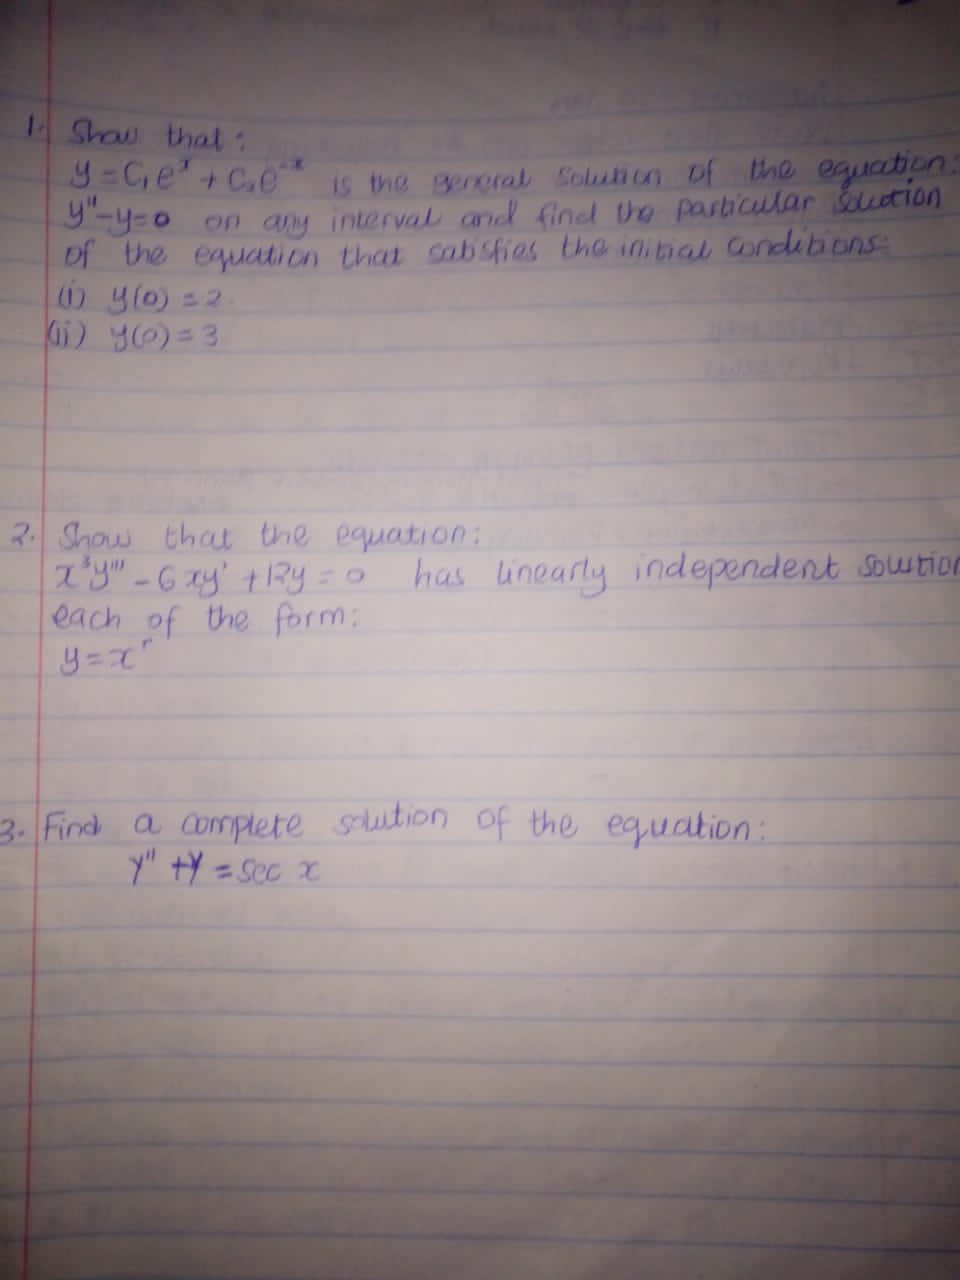 1. Show that:
y = C₁eˣ + C₂e⁻ˣ is the general solution of the equation:
y"-y=0 on any interval and find the particular solution
of the equation that satisfies the initial conditions:
(i) y(0) = 2
(ii) y(0) = 3
2. Show that the equation:
x³y''' - 6xy' + 12y = 0 has linearly independent solution
each of the form:
y = xʳ
3. Find a complete solution of the equation:
y" + y = sec x